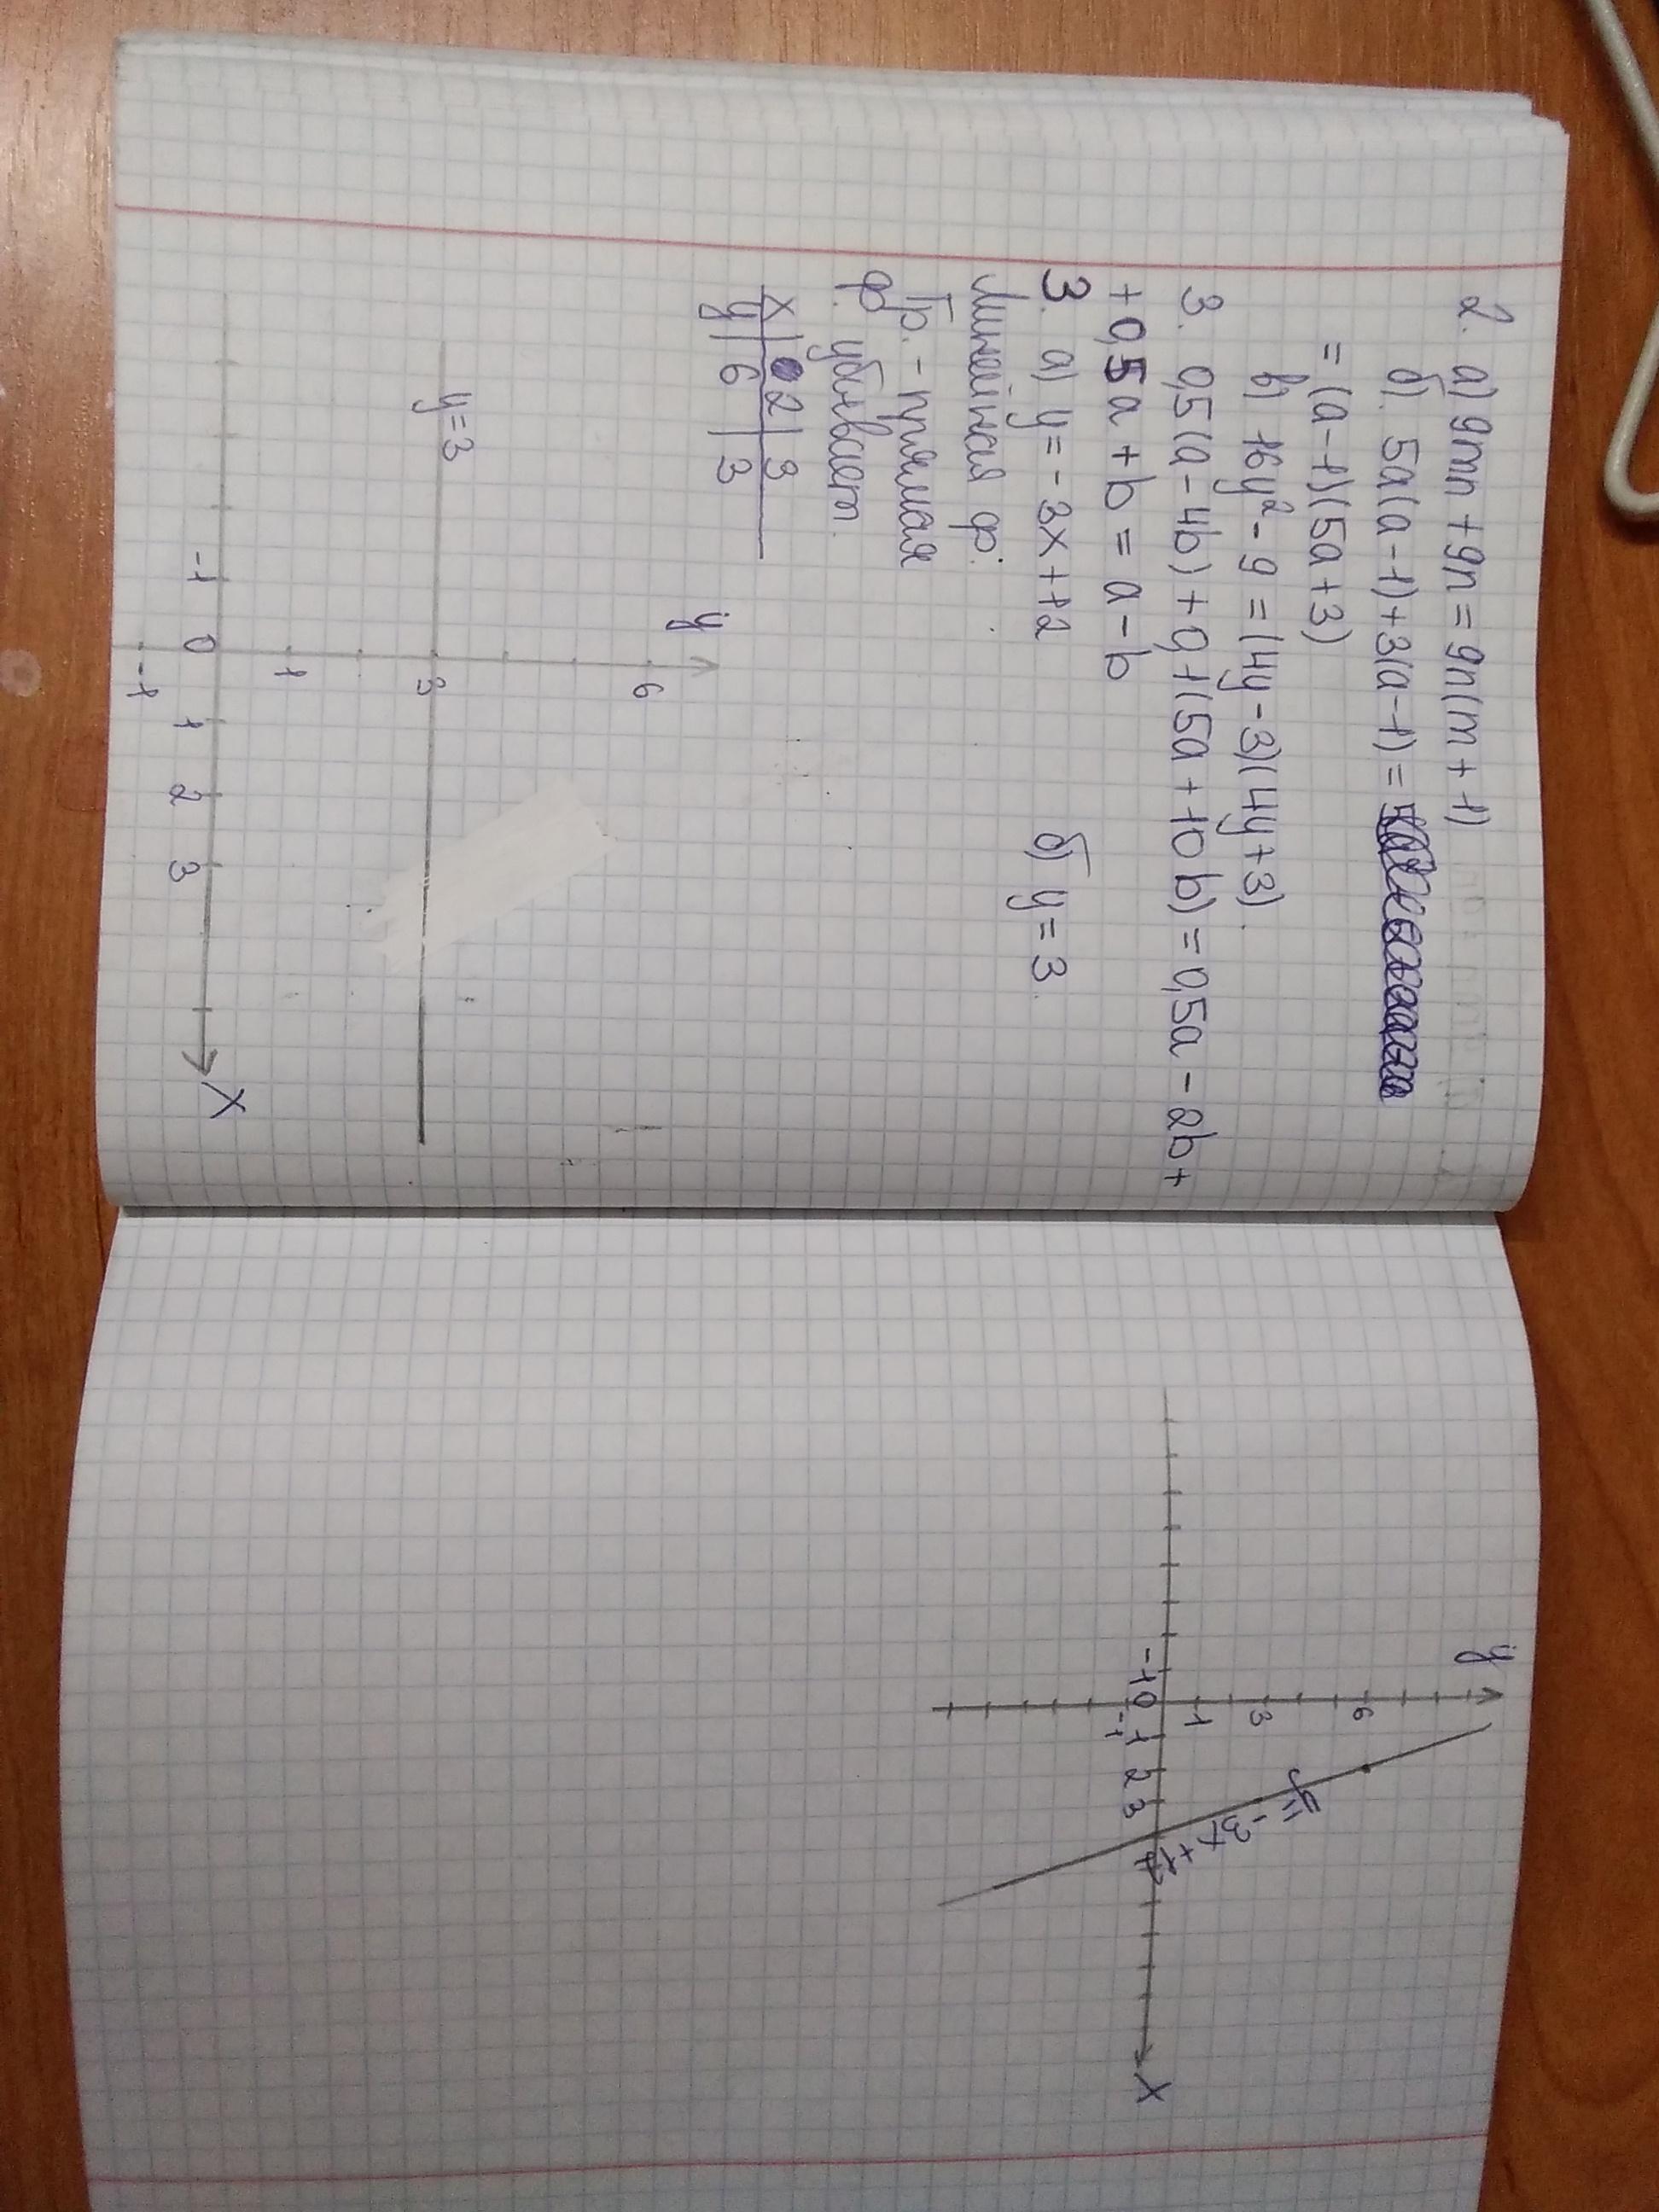 2. а) 9mn + 9n = 9n(m + 1)
б). 5a(a-1)+3(a-1)=
= (a-1)(5a+3)
в) 16y²-9 = (4y-3)(4y+3).
3. 0,5(a-4b)+0,1(5a+10b)=0,5a-2b+
+0,5a+b=a-b
3. а) y=-3x+12
б) y=3.
Линейная ф.
Гр. - прямая
ф. убывает.
x | 2 | 3
y | 6 | 3
y
6
3
y=3
1
-1 0 1 2 3 x
-1
y
6
3
1
-1 0 1 2 3 x
-1
y=-3x+12